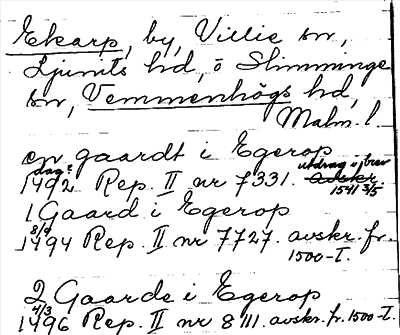 Ekarp, by, Villie sn,
Ljunits hd, ö Slimminge
sn, Vemmenhögs hd,
Malm. l.
en gaardt i Egerop
dag?
1492 Rep. II nr 7331. avskr. utdrag i brev
1541 3/5
1 Gaard i Egerop
1494 Rep. II nr 7727. avskr. fr.
1500-T.
2 Gaarde i Egerop
4/3
1496 Rep. II nr 8111 avskr. fr. 1500-T.